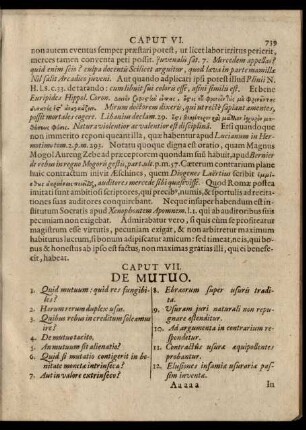 CAPUT VI. 739
non autem eventus semper præstari potest, ut licet labor irritus perierit,
merces tamen conventa peti possit. Juvenalis sat. 7. Mercedem appellas?
quid enim scio? culpa docentis Scilicet arguitur, quod læva in parte mamillæ
Nil salit Arcadico juveni. Aut quando adplicari ipsi potest illud Plinii N.
H. l. 8. c. 33. de tarando: cum libuit sui coloris esse, asini similis est. Et bene
Euripides Hippol. Coron.
Mirum doctorem diveris, qui utrectè sapiant amentes,
possit mortales cogere. Libanius declam. 29.
Natura violentior ac valentior est disciplinâ. Et eo quoque
non immerito reponi queant illa, quæ habentur apud Lucianum in Her-
motimo tom. 2. p. m. 293. Notatu quoque digna est oratio, quam Magnus
Mogol Aureng Zebe ad præceptorem suum hac de re habuit, apud Bernier
de rebus in regno Mogoris gestis, part. alt. p. m. 57. Cæterum contrarium plane
huic contractum inivit Æschines, quem Diogenes Laërtius scribit
auditores mercede sibi quæsivisse. Quod Romæ postea
imitati sunt ambitiosi scriptores, qui precibus, nummis, & sportulis ad recitationes
suas auditores conquirebant. Neque insuper habendum est in-
stitutum Socratis apud Xenophontem Apomnem. l. 1. qui ab auditoribus suis
pecuniam non exigebat. Admirabatur vero, si quis cum se profiteretur
magistrum esse virtutis, pecuniam exigat, & non arbitretur maximum
habiturus lucrum, si bonum adipiscatur amicum: sed timeat, ne is, qui bo-
nus & honestus ab ipso est factus, non maximas gratias illi, qui ei benefe-
cit, habeat.
CAPUT VII.
DE MUTUO.
1. Quid mutuum: quid res fungibi-
les?
2. Harum rerum duplex usus.
3. Quibus rebus in creditum ire amus
4. De mutuo tacito.
5. An mutuum sit alienatio?
6. Quid si mutatio contigerit in bo-
nitate monetæ intrinseca?
7. Aut in valore extrinseco?
8. Ebræorum super usuris tradi-
ta.
9. Usuram juri naturali non repu-
gnare ostenditur.
10. Ad argumenta in contrarium re-
spondetur.
11. Contractus usuræ æquipollentes
probantur.
12. Elusiones infamiæ usurariæ pas-
sim inventæ.
Aaaaa In